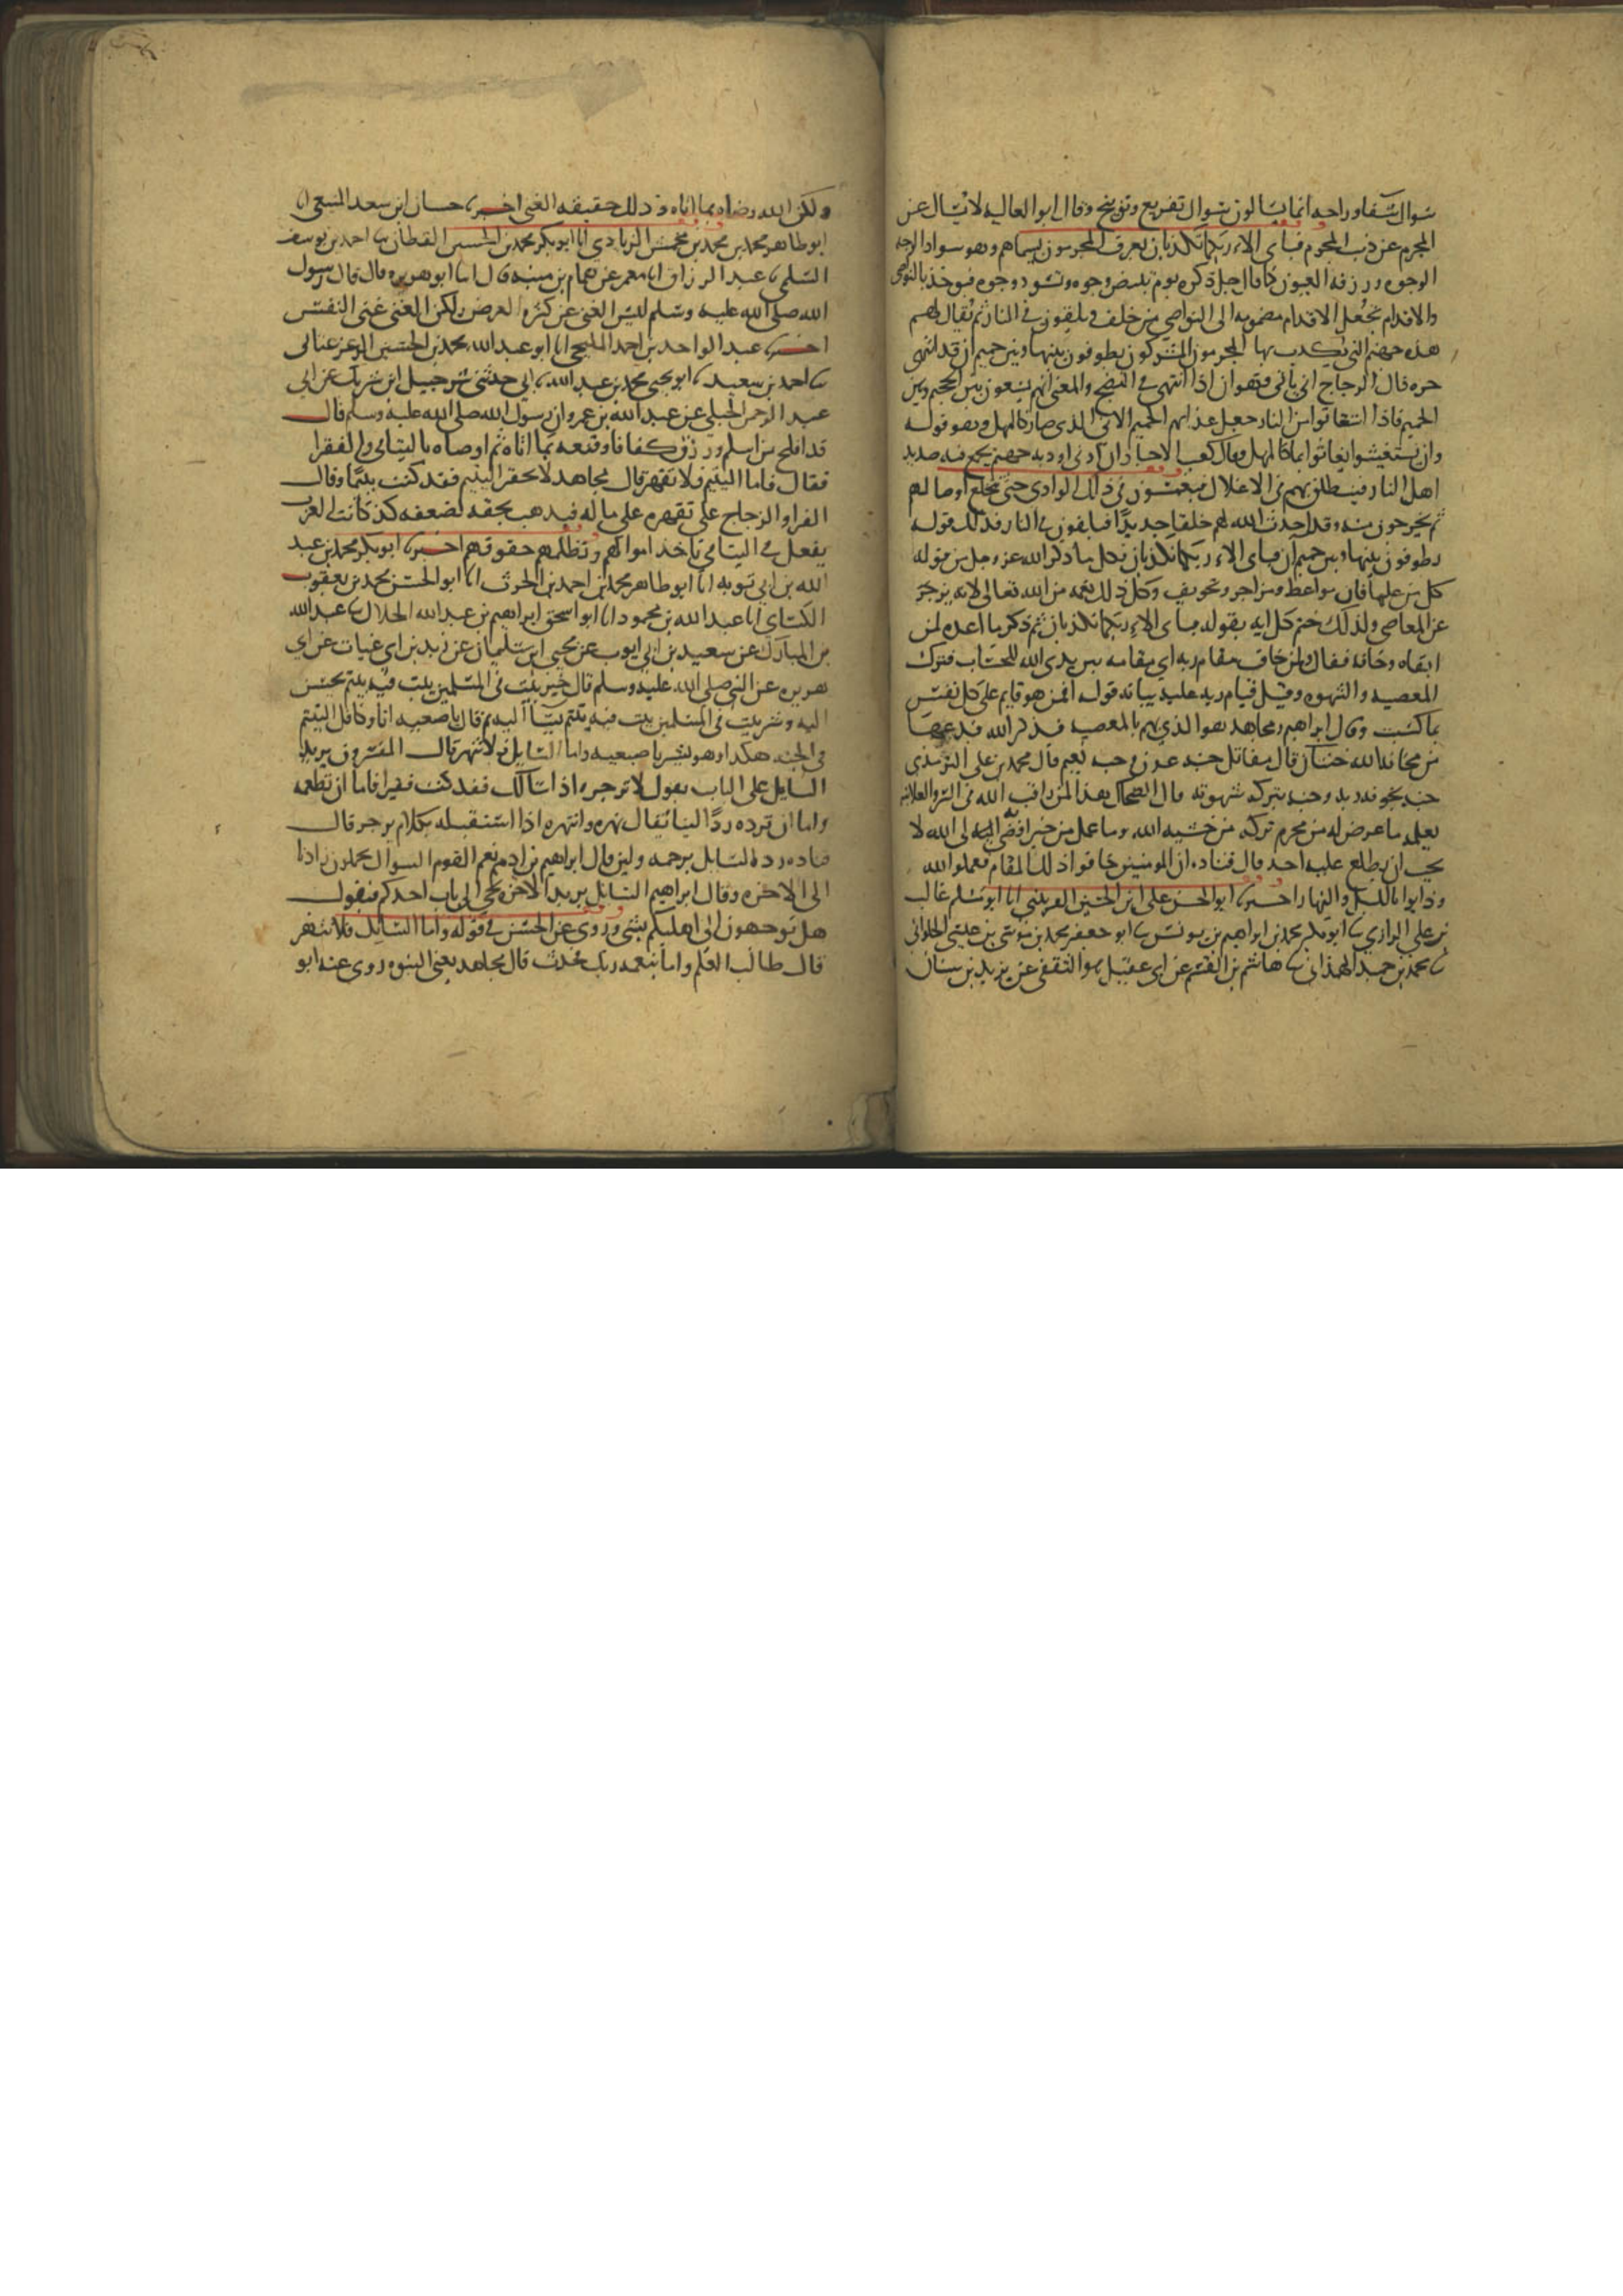 سوال شفا وراحه انما يسالون سوال تقريع وتوبيخ وقال ابو العاليه لا يسال عن
المجرم عن ذنب المجرم فباي الاء ربكما تكذبان يعرف المجرمون بسيماهم وهو سواد الوجه
الوجوه وزرقه العيون كما قال جل ذكره يوم تبيض وجوه وتسود وجوه فيوخذ بالنواصي
والاقدام تجعل الاقدام مضمومه الى النواصي من خلف ويلقون في النار ثم يقال لهم
هذه جهنم التي يكذب بها المجرمون المشركون يطوفون بينها وبين حميم ان قد انتهى
حره قال الزجاج انى يأنى فهو آن اذا انتهى في النضج والمعنى انهم يسعون بين الجحيم وبين
الحميم فاذا استغاثوا من النار جعل عذابهم الحميم الاني الذي صار كالمهل وهو قوله
وان يستغيثوا يغاثوا بما كالمهل وقال كعب الاحبار ان وادي اوديه جهنم يجمع فيه صديد
اهل النار فينطلق بهم في الاغلال فيغمسون في ذلك الوادي حتى تنخلع اوصالهم
ثم يخرجون منه وقد احدث الله لهم خلقا جديدا فيلقون في النار فذلك قوله
يطوفون بينها وبين حميم آن فباي الاء ربكما تكذبان وكل ما ذكر الله عز وجل من قوله
كل من عليها فان مواعظ ومزاجر وتخويف وكل ذلك نعمه من الله تعالى لانه يزجر
عن المعاصي ولذلك ختم كل ايه بقوله فباي الاء ربكما تكذبان ثم ذكر ما اعده لمن
اتقاه وخافه فقال ولمن خاف مقام ربه اي مقامه بين يدي الله للحساب فترك
المعصيه والشهوه وقيل قيام ربه عليه بيانه قوله افمن هو قايم على كل نفس
بما كسبت وقال ابراهيم ومجاهد هو الذي يهم بالمعصيه فيذكر الله فيدعها
من مخافه الله جنتان قال مقاتل جنه عدن وجنه نعيم قال محمد بن علي الترمذي
جنه بخوفه ربه وجنه بتركه شهوته قال الضحاك هذا لمن راقب الله في السر والعلانيه
بعلمه ما عرض له من محرم تركه من خشيه الله وما عمل من خير افضى به الى الله لا
يحب ان يطلع عليه احد قال قتاده ان المومنين خافوا ذلك المقام فعملوا لله
ودابوا بالليل والنهار اخبرنا ابو الحسن علي ابن الحسين القريشي انا ابو مسلم غالب
بن علي الرازي ثنا ابو بكر محمد بن ابراهيم بن يونس ثنا ابو جعفر محمد بن موسى بن عيسى الحلواني
ثنا محمد بن عبيد الهمذاني ثنا هاشم بن القسم عن ابي عقيل هو الثقفي عن يزيد بن سنان
ولكن الله رضاه بما اتاه وذلك حقيقه الغنى اخبرنا حسان ابن سعد المنيعي انا
ابو طاهر محمد بن محمد بن محمش الزيادي انا ابو بكر محمد بن الحسين القطان ثنا احمد بن يوسف
السلمي ثنا عبد الرزاق انا معمر عن همام بن منبه قال انا ابو هريره قال قال رسول
الله صلى الله عليه وسلم ليس الغنى عن كثره العرض ولكن الغنى غنى النفس
اخبرنا عبد الواحد بن احمد المليحي انا ابو عبد الله محمد بن الحسين الزعرتاني
ثنا احمد بن سعيد ثنا ابو يحيى محمد بن عبد الله ثنا ابي حدثني شرحبيل ابن شريك عن ابي
عبد الرحمن الحبلي عن عبد الله بن عمرو ان رسول الله صلى الله عليه وسلم قال
قد افلح من اسلم ورزق كفافا وقنعه بما اتاه ثم اوصاه باليتامى والفقرا
فقال فاما اليتيم فلا تقهر قال مجاهد لا تحقر اليتيم فقد كنت يتيما وقال
الفرا والزجاج على تقهره على ماله فيذهب بحقه لضعفه كذى كانت العرب
يفعل في اليتامى تاخذ اموالهم وتظلمهم حقوقهم اخبرنا ابو بكر محمد بن عبد
الله بن ابي توبه انا ابو طاهر محمد بن احمد بن الحرث انا ابو الحسن محمد بن يعقوب
الكسائي انا عبد الله بن محمود انا ابو اسحق ابراهيم بن عبد الله الخلال ثنا عبد الله
بن المبارك عن سعيد بن ابي ايوب عن يحيى ابن سليمان عن زيد بن ابي غياث عن ابي
هريره عن النبي صلى الله عليه وسلم قال خير بيت في المسلمين بيت فيه يتيم يحسن
اليه وشر بيت في المسلمين بيت فيه يتيم يسا اليه ثم قال باصبعيه انا وكافل اليتيم
في الجنه هكذا وهو يشير باصبعيه واما السايل فلا تنهر قال المفسرون يريد
السايل على الباب يقول لا تزجره اذا سالك فقد كنت فقيرا فاما ان تطعمه
واما ان ترده ردا لينا يقال نهره وانتهره اذا استقبله بكلام يزجر قال
قتاده رد السايل برحمه ولين قال ابراهيم بن ادهم نعم القوم السوال يحملون زادنا
الى الاخره وقال ابراهيم السايل يريد الاخره يجي الى باب احدكم فيقول
هل توجهون الى اهليكم بشي وروي عن الحسن في قوله واما السايل فلا تنهر
قال طالب العلم واما بنعمه ربك فحدث قال مجاهد يعني النبوه روى عنه ابو